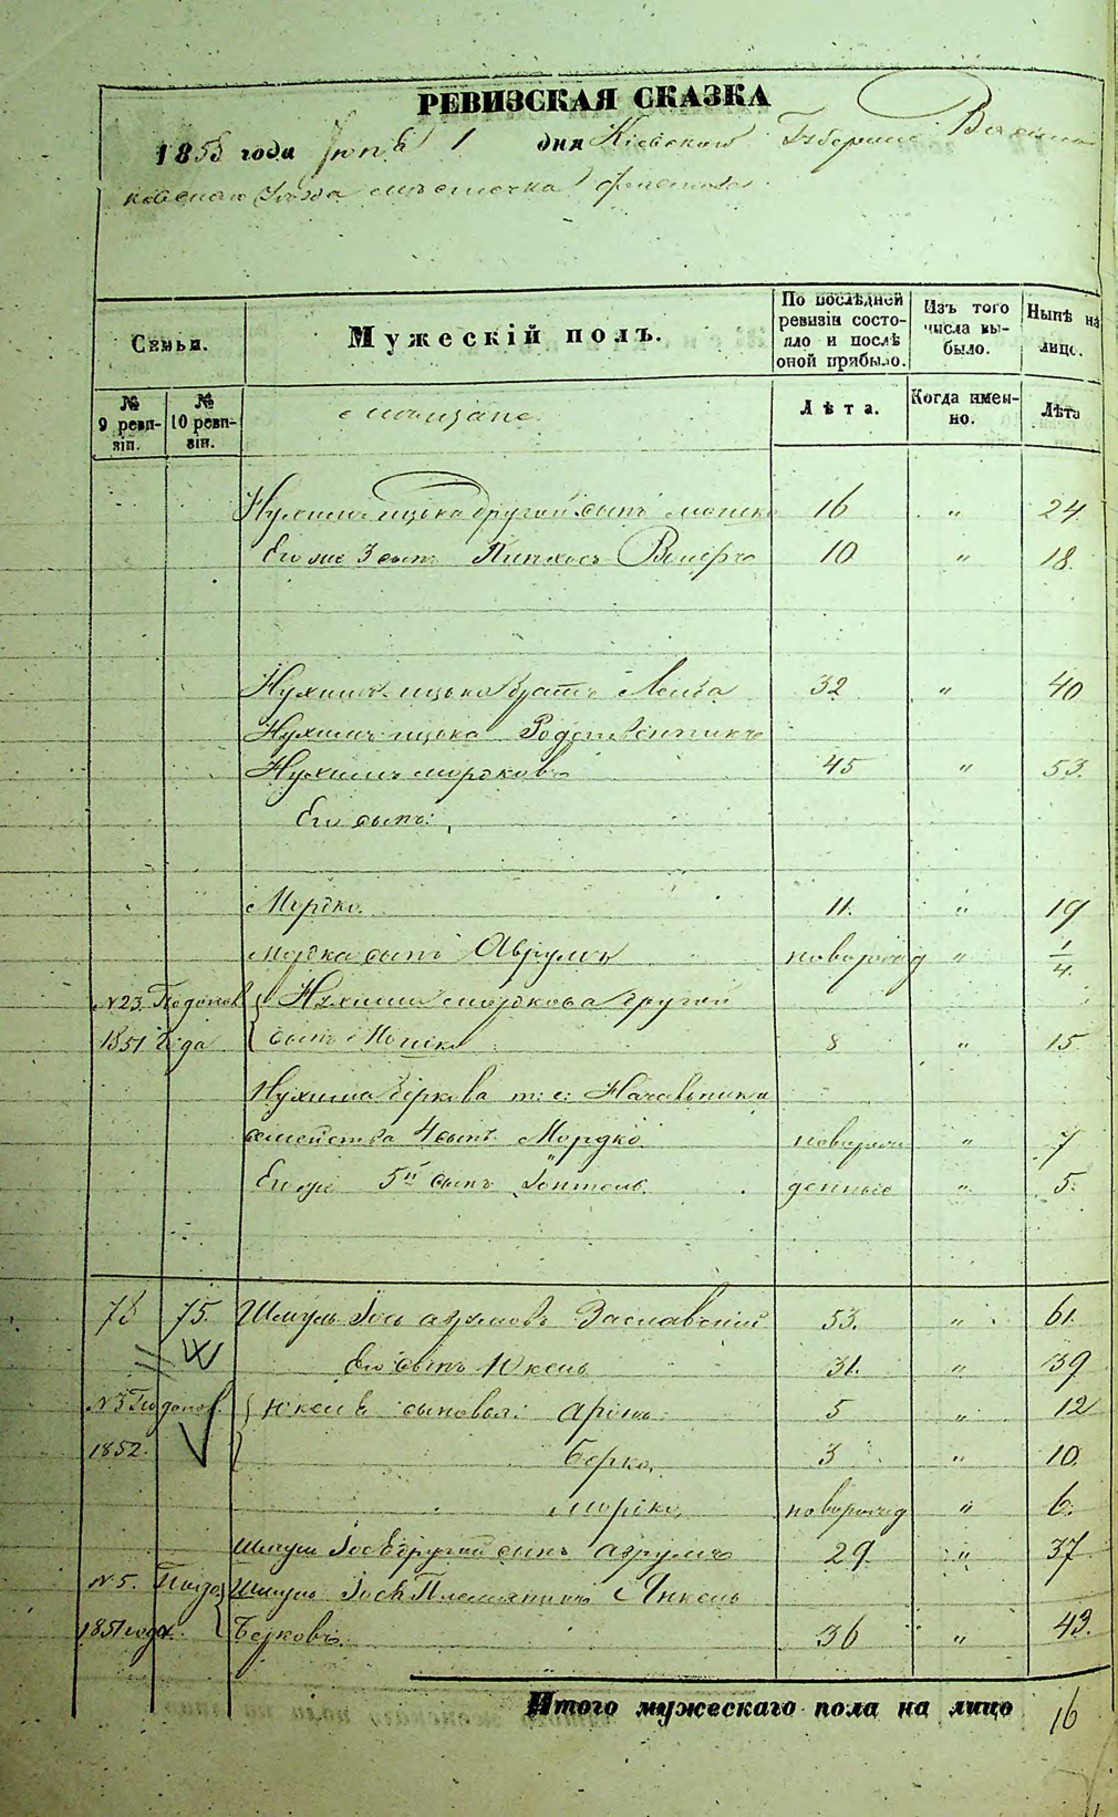 РЕВИЗСКАЯ СКАЗКА
1858 года Іюня 1 дня Кіевской Губерніи
уезда местечка
Семьи.
Мужескій полъ.
По послѣдней ревизіи состояло и послѣ оной прибыло.
Изъ того числа выбыло.
Нынѣ на лицо.
№ 9 ревизіи.
№ 10 ревизіи.
мещане
Лѣта.
Когда именно.
Лѣта
Нухима ицька другой сынъ мошко 16 " 24
Его же 3 сынъ Пинхосъ 10 " 18.
Нухима ицька братъ Лейба 32 " 40
Нухима ицька Родственникъ
Нухимъ мордковъ 45 " 53.
Его сынъ:
Мордко. 11. " 19
Мордка сынъ Аврумъ новорожд " 1/4.
№ 23. По допол { Нухима мордкова другой
1851 Года { сынъ Мошко 8 " 15
Нухима Беркова т: е: Начальника
семейства 4 сынъ Мордко новорож " 7
Его же 5й сынъ денные " 5.
78 75. Шмуль Іось аврумовъ Заславскій 53. " 61.
Его сынъ Юкель 31. " 39
№ 3 По допол. { Юкеля сыновья: Аронъ 5 " 12
1852. { Берко. 3 " 10.
Мордко, новорожд " 6.
Шмуля Іося другой сынъ Аврумъ 29. " 37
№ 5. По допол { Шмуля Іося Племянникъ Янкель
1851 года. { Берковъ. 36 " 43.
Итого мужескаго пола на лицо 16